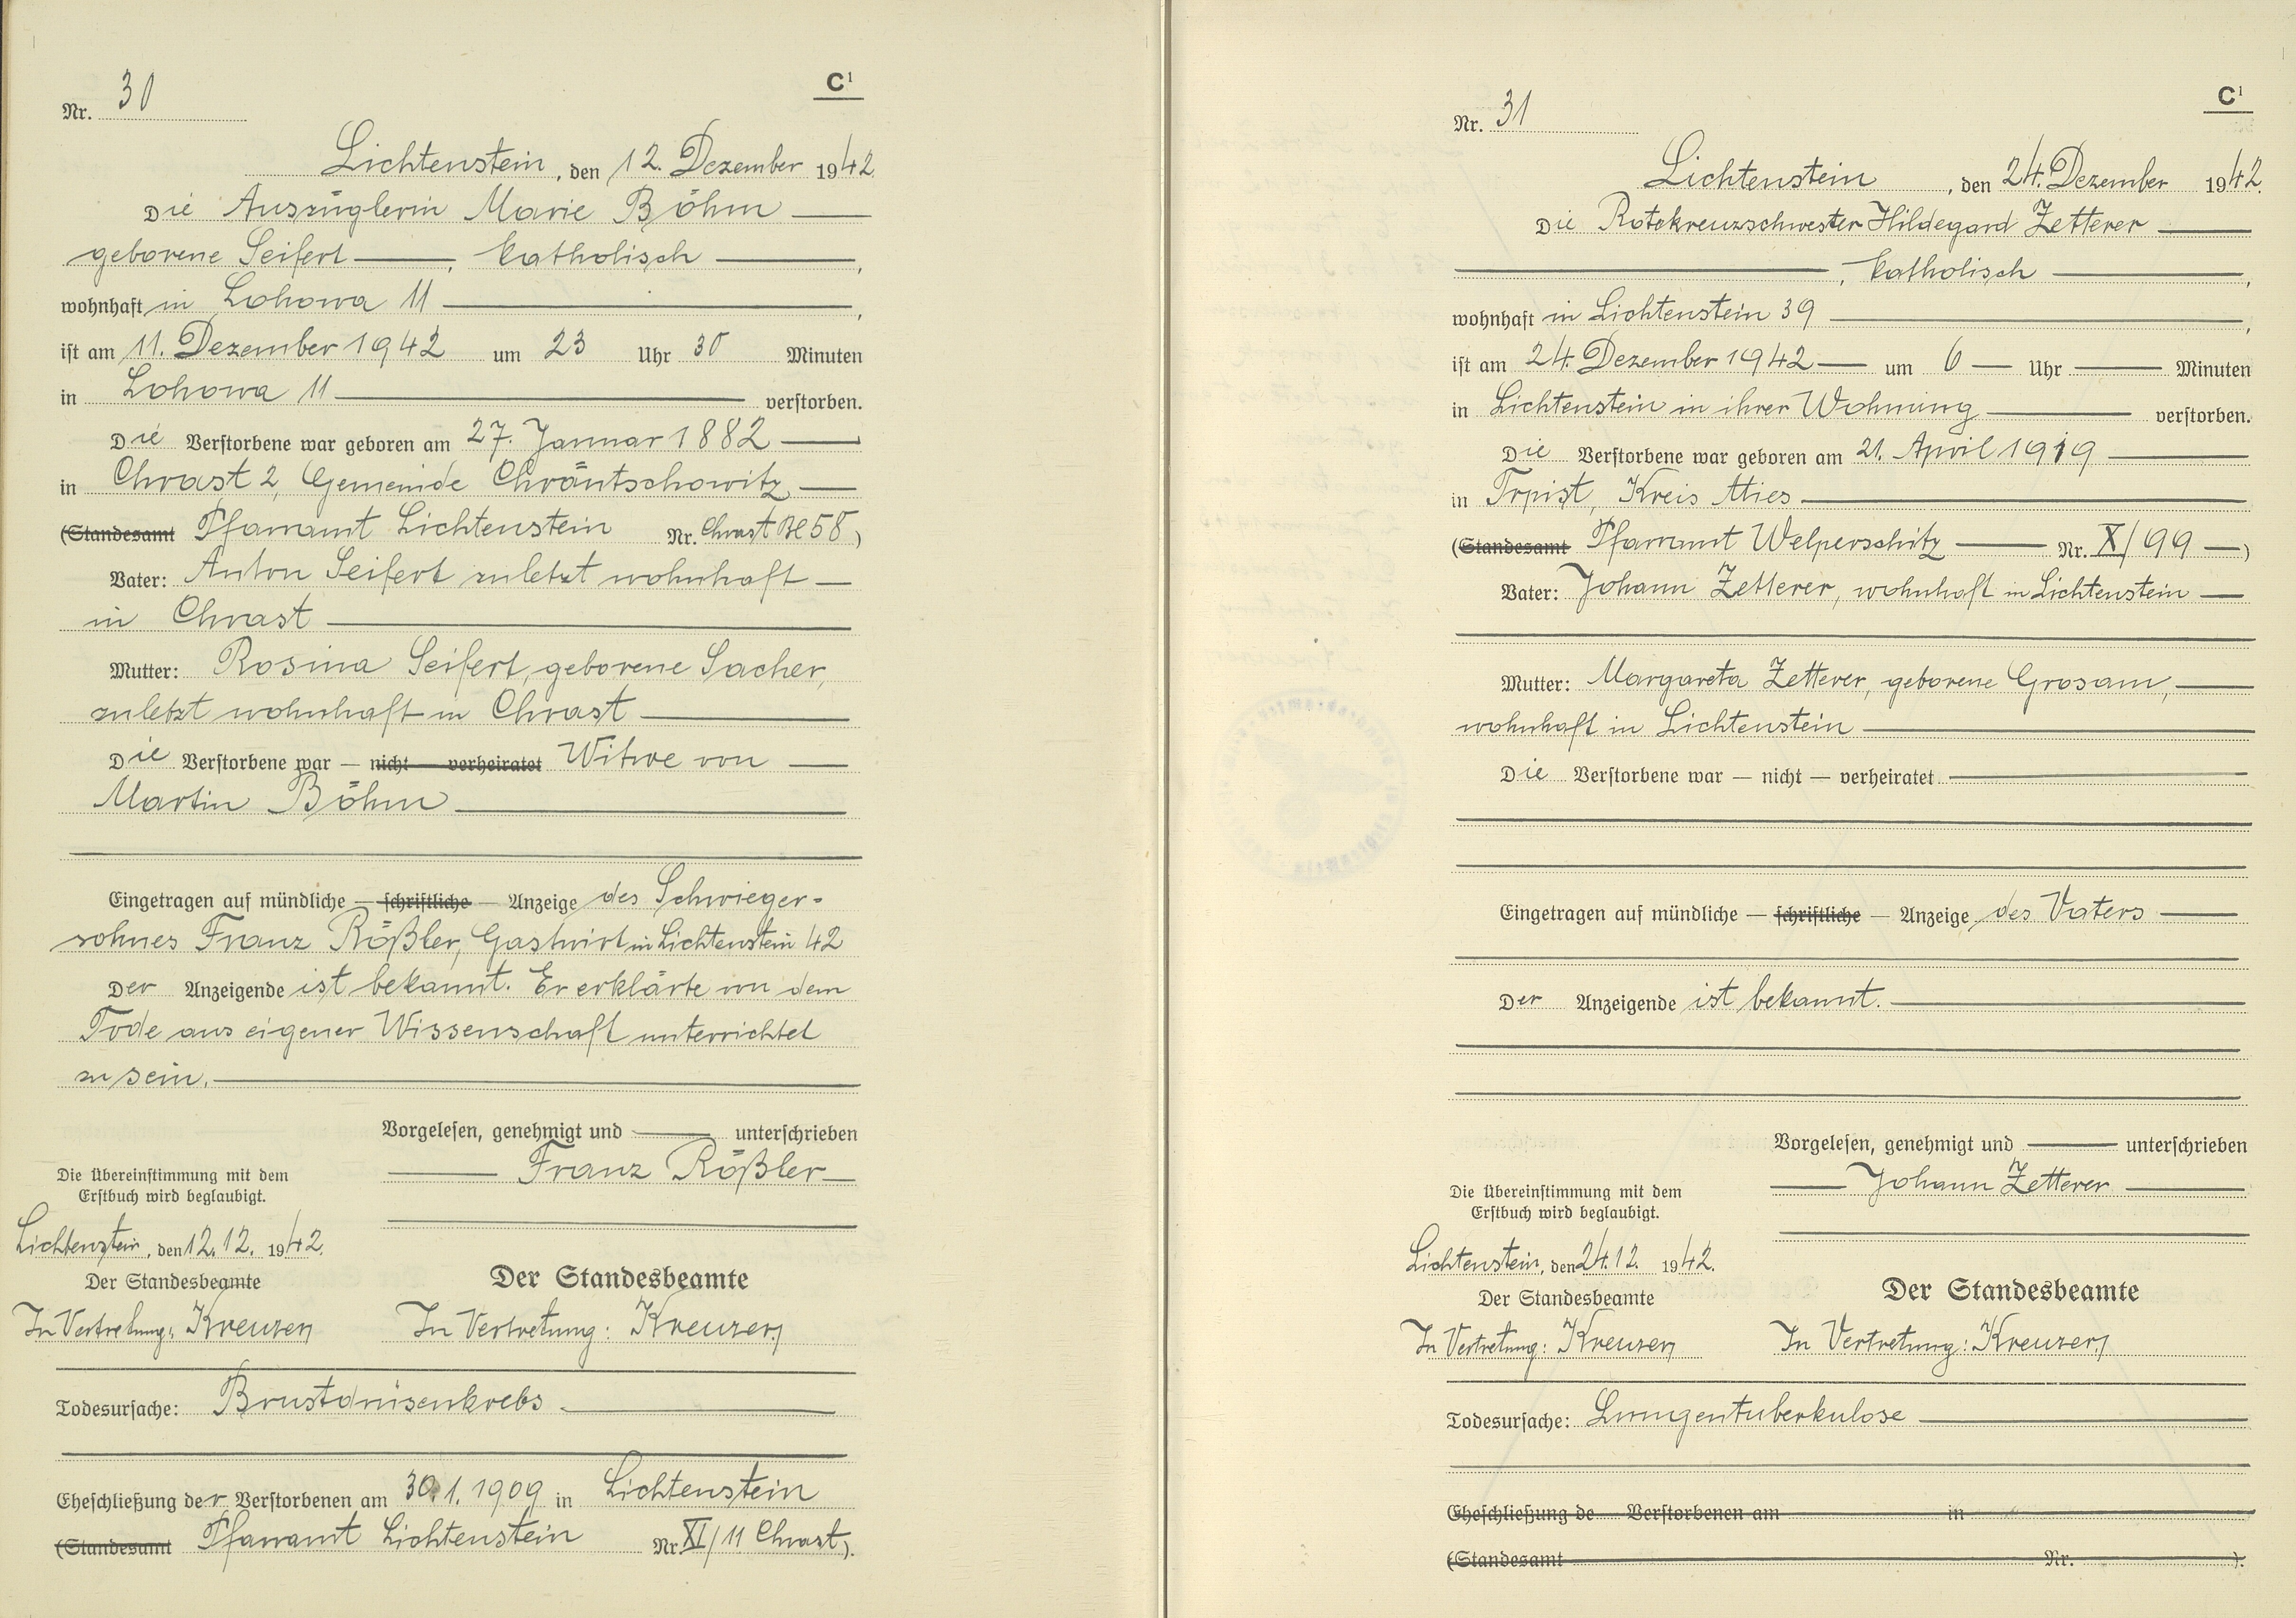 C¹
Nr. 30
Lichtenstein, den 12. Dezember 1942.
Die Auszüglerin Marie Böhm
geborene Seifert, katholisch,
wohnhaft in Lohowa 11,
ist am 11. Dezember 1942 um 23 Uhr 30 Minuten
in Lohowa 11 verstorben.
Die Verstorbene war geboren am 27. Januar 1882
in Chrast 2, Gemeinde Chrantschowitz
(Standesamt Pfarramt Lichtenstein Nr. Chrast 58)
Vater: Anton Seifert zuletzt wohnhaft
in Chrast
Mutter: Rosina Seifert, geborene Sacher,
zuletzt wohnhaft in Chrast
Die Verstorbene war — nicht — verheiratet Witwe von
Martin Böhm
Eingetragen auf mündliche — schriftliche — Anzeige des Schwieger-
sohnes Franz Rößler, Gastwirt in Lichtenstein 42
Der Anzeigende ist bekannt. Er erklärte von dem
Tode aus eigener Wissenschaft unterrichtet
zu sein.
Vorgelesen, genehmigt und unterschrieben
Franz Rößler
Die Übereinstimmung mit dem
Erstbuch wird beglaubigt.
Lichtenstein, den 12.12. 1942.
Der Standesbeamte
In Vertretung: Kreuzer
Der Standesbeamte
In Vertretung: Kreuzer
Todesursache: Brustdrüsenkrebs
Eheschließung der Verstorbenen am 30.1.1909 in Lichtenstein
(Standesamt Pfarramt Lichtenstein Nr. XI/11 Chrast).
C¹
Nr. 31
Lichtenstein, den 24. Dezember 1942.
Die Rotekreuzschwester Hildegard Zetterer
, katholisch,
wohnhaft in Lichtenstein 39,
ist am 24. Dezember 1942 um 6 Uhr Minuten
in Lichtenstein in ihrer Wohnung verstorben.
Die Verstorbene war geboren am 21. April 1919
in Trpist, Kreis Mies
(Standesamt Pfarramt Welperschitz Nr. X/99)
Vater: Johann Zetterer, wohnhaft in Lichtenstein
Mutter: Margareta Zetterer, geborene Grosam,
wohnhaft in Lichtenstein
Die Verstorbene war — nicht — verheiratet
Eingetragen auf mündliche — schriftliche — Anzeige des Vaters
Der Anzeigende ist bekannt.
Vorgelesen, genehmigt und unterschrieben
Johann Zetterer
Die Übereinstimmung mit dem
Erstbuch wird beglaubigt.
Lichtenstein, den 24.12. 1942.
Der Standesbeamte
In Vertretung: Kreuzer
Der Standesbeamte
In Vertretung: Kreuzer
Todesursache: Lungentuberkulose
Eheschließung de Verstorbenen am in
(Standesamt Nr. ).